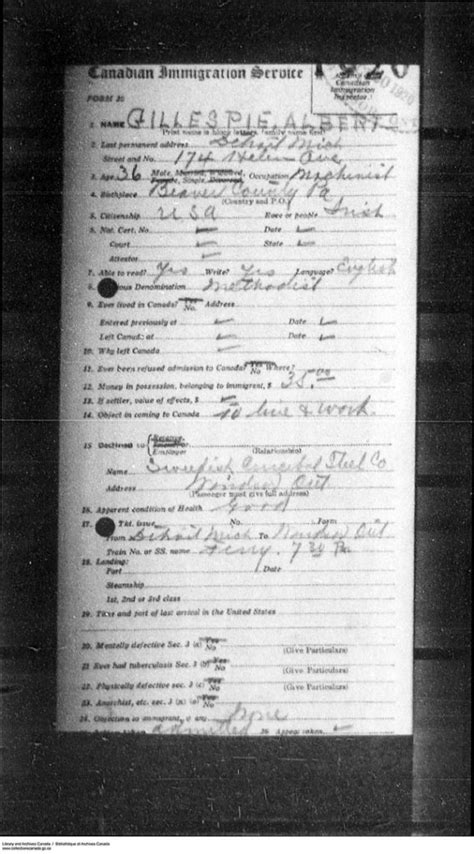 Canadian Immigration Service 1920
Canadian
Immigration
Inspector
FORM 30
1. NAME GILLESPIE, ALBERT
(Print name in block letters, family name first)
2. Last permanent address Detroit Mich
Street and No. 174 Helen Ave
3. Age 36 Male, Married, Widowed, Female, Single, Divorced, Occupation Machinist
4. Birthplace Beaver County Pa
(Country and P.O.)
5. Citizenship USA Race or people Irish
6. Nat. Cert. No. Date
Court State
Attestor
7. Able to read? Yes Write? Yes Language? English
8. ious Denomination Methodist
9. Ever lived in Canada? Yes No Address
Entered previously at Date
Left Canada at Date
10. Why left Canada
11. Ever been refused admission to Canada? Yes No Where?
12. Money in possession, belonging to immigrant, $ 35.00
13. If settler, value of effects, $
14. Object in coming to Canada To live & work
15 Destined to Employer
(Relationship)
Name Swedish Crucible Steel Co
Address Windsor Ont
(Passenger must give full address)
16. Apparent condition of Health Good
17. Tkt. issue No. Form
From Detroit Mich To Windsor Ont
Train No. or SS. name Ferry. 7 30 Pm
18. Landing:
Port Date
Steamship
1st, 2nd or 3rd class
19. Time and port of last arrival in the United States
20. Mentally defective Sec. 3 (a) Yes No (Give Particulars)
21 Ever had tuberculosis Sec. 3 (b) Yes No (Give Particulars)
22. Physically defective sec. 3 (c) Yes No (Give Particulars)
23. Anarchist, etc. sec. 3 (n) (o) Yes No
24. Objection to immigrant, if any None
admitted 26 Appeal taken.
Library and Archives Canada / Bibliothèque et Archives Canada
www.collectionscanada.gc.ca